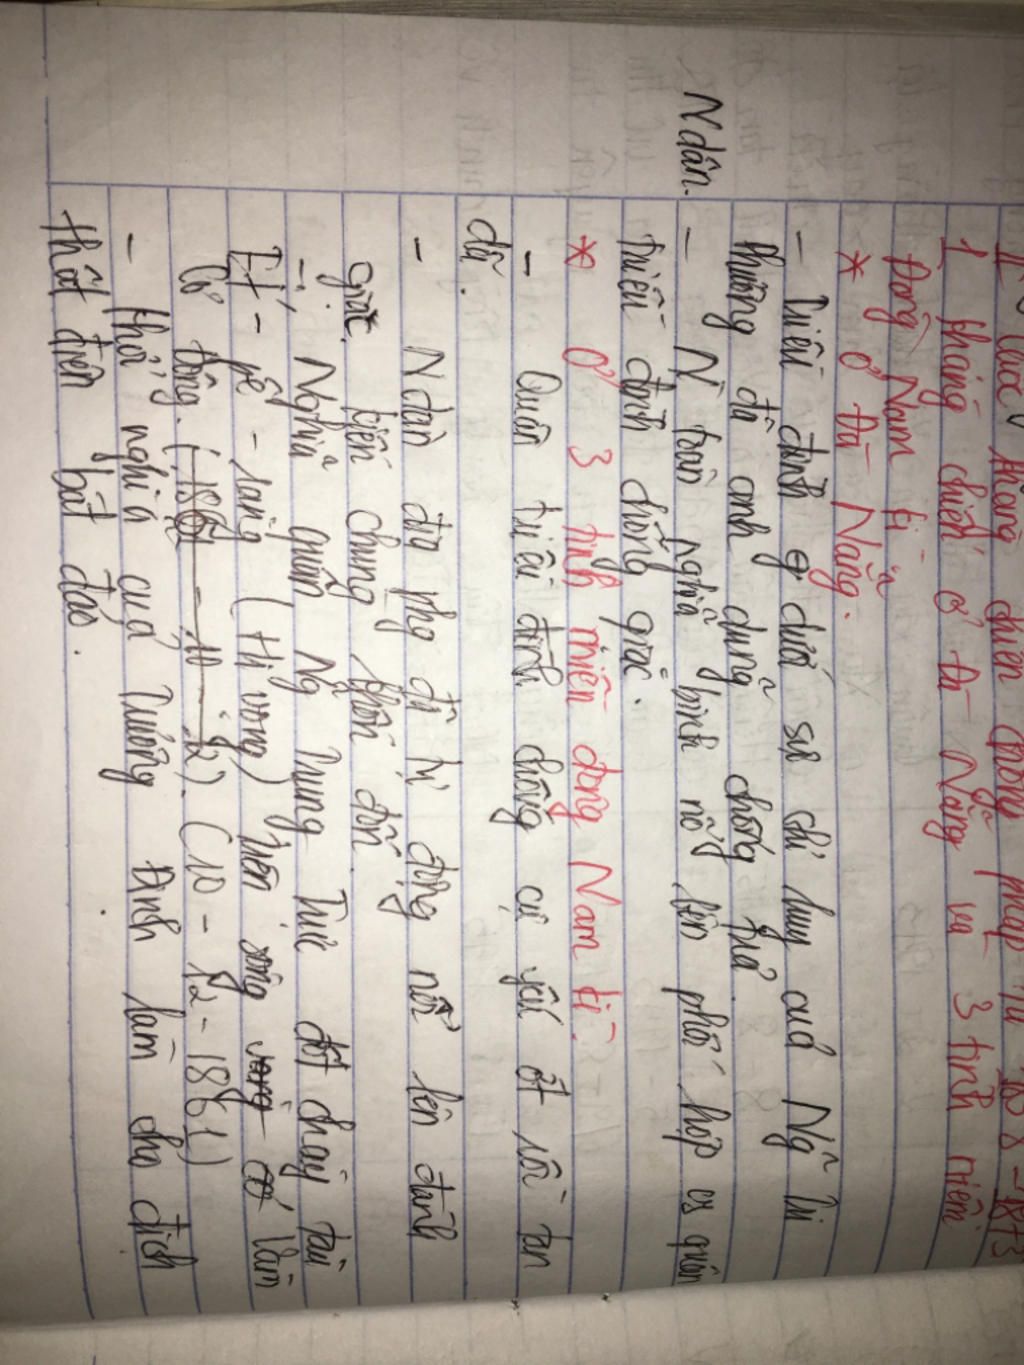 II. Cuộc kháng chiến chống Pháp từ 1858 - 1873
1 kháng chiến ở Đà Nẵng và 3 tỉnh miền
Đông Nam kì
* Ở Đà Nẵng.
- Triều đình dưới sự chỉ huy của Ng~ tri
phương đã anh dũng chống trả.
Ndân. - N toàn nghĩa binh nổi lên phối hợp vs quân
triều đình chống giặc.
* Ở 3 tỉnh miền đông Nam kì:
- Quân triều đình chống cự yếu ớt rồi tan
dã.
- Ndân địa phg đã tự động nổi lên đánh
giặc, kiên chung khốn đốn
- Nghĩa quân Ng Trung Trực đốt cháy tàu
Et - pê - răng (Hi vọng) trên sông vàng cỏ Vàm
Cỏ Đông. (10 - 12 - 1861)
- khởi nghĩa của Trương Định làm cho địch
thất điên bát đảo.